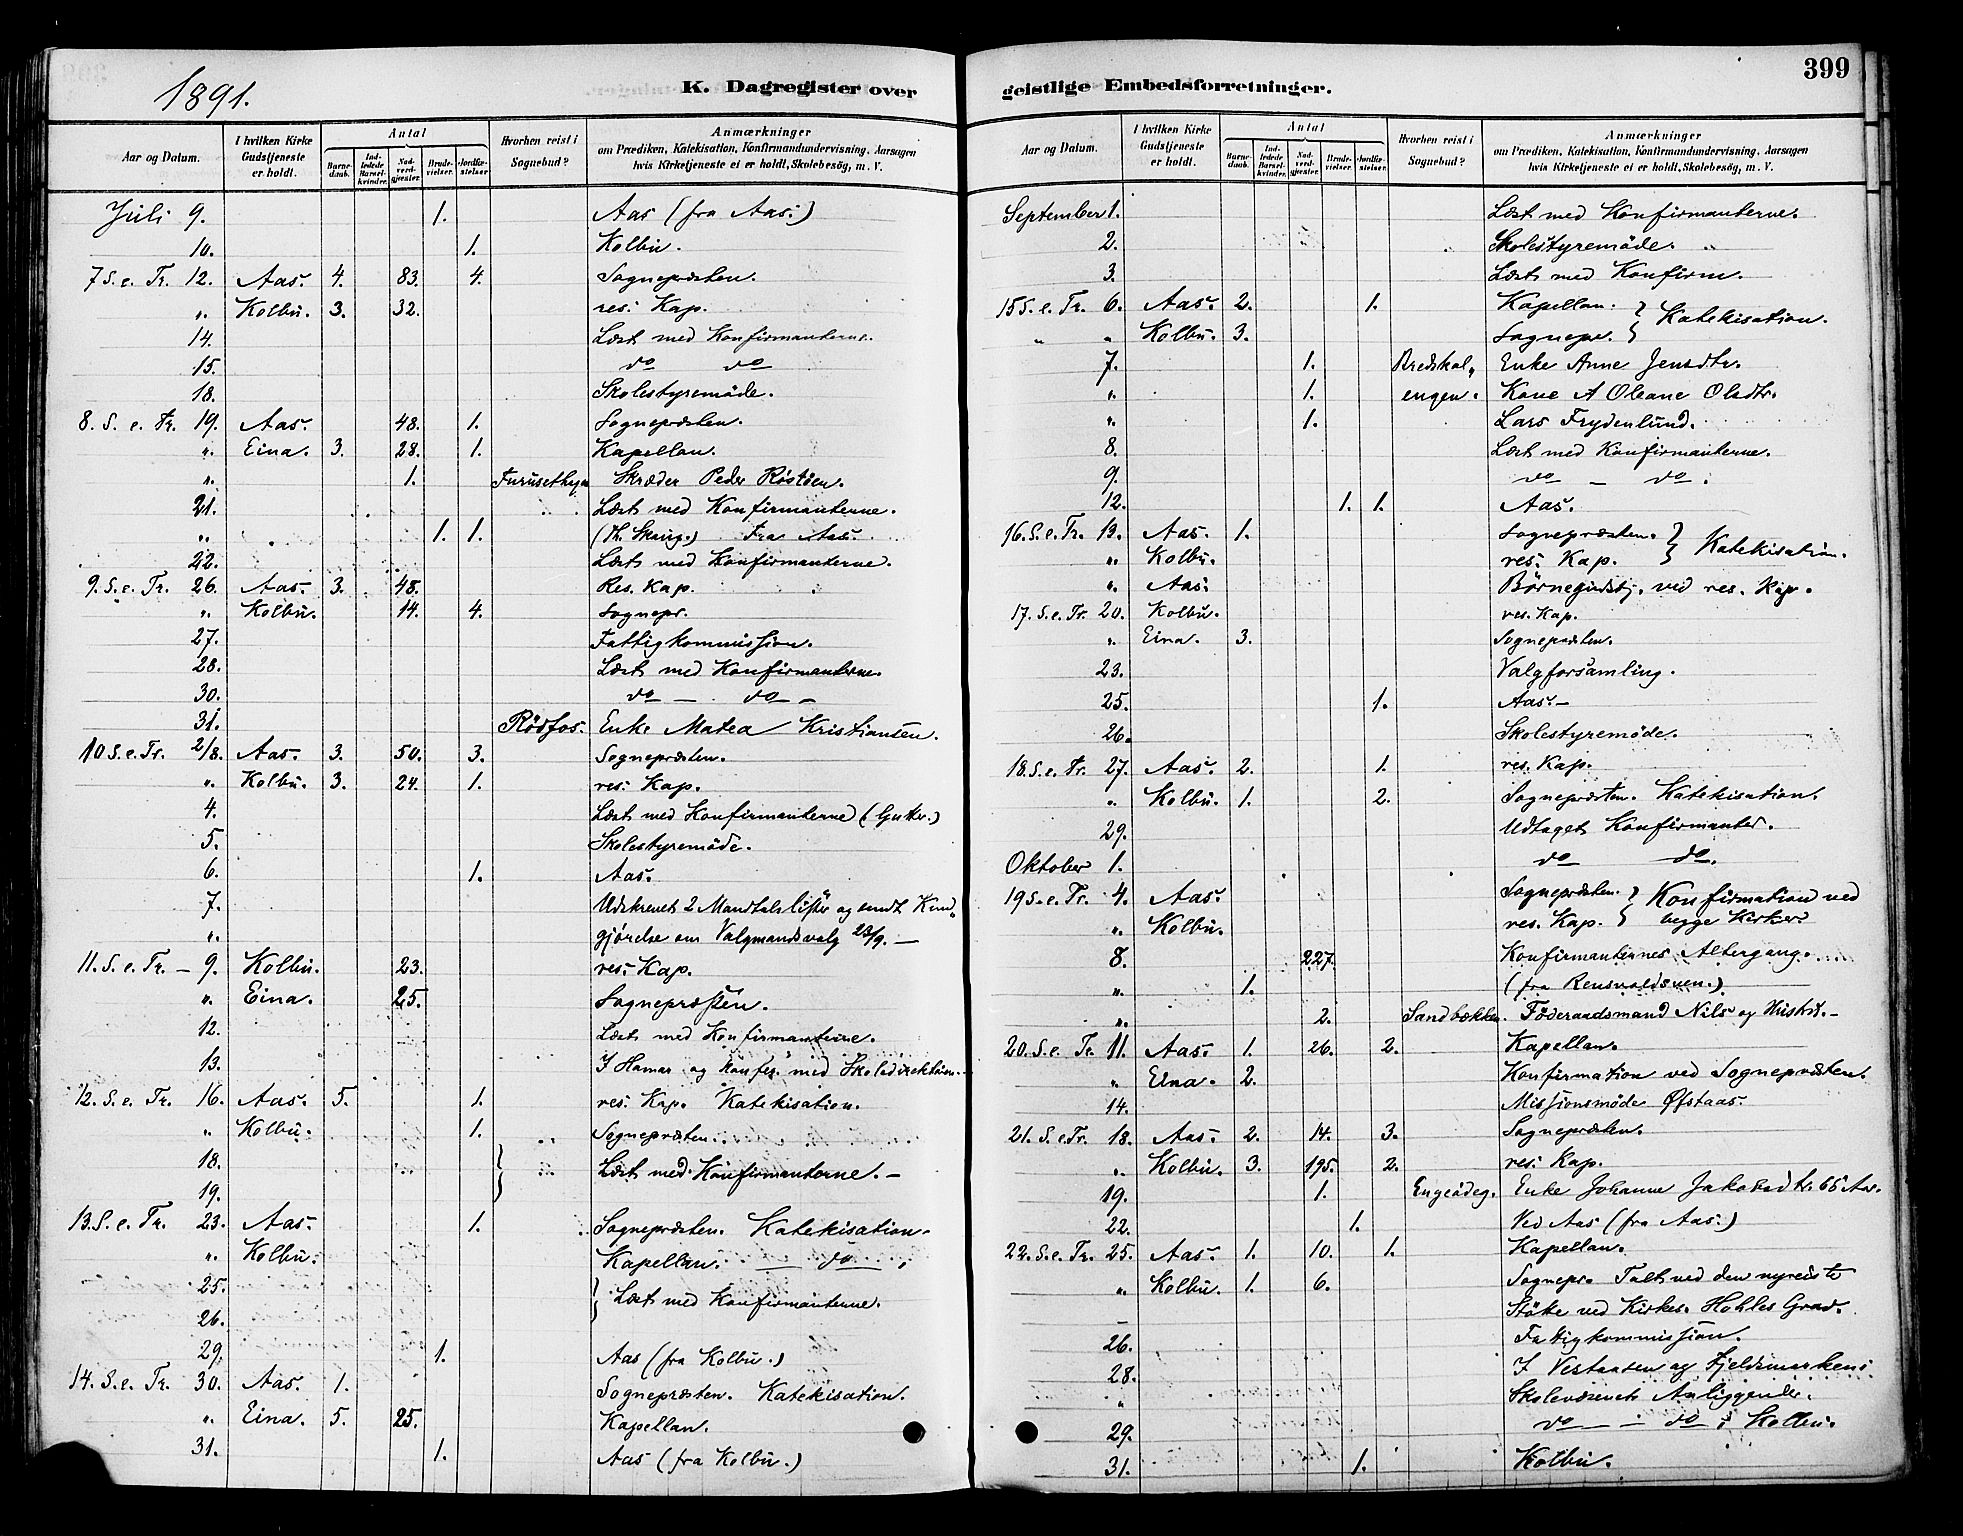 1891.
K. Dagregister over
Aar og Datum. I hvilken Kirke Gudstjeneste er holdt. Antal Barnedaab. Indledede Barselkvinder. Nadverdgjester. Brudevielser. Jordfæstelser. Hvorhen reist i Sognebud? Anmærkninger om Prædiken, Katekisation, Konfirmandundervisning, Aarsagen hvis Kirketjeneste ei er holdt, Skolebesøg, m. V.
Juli 9. 1. Aas (fra Aas.)
10. 1. Kolbu.
7 S. e. Tr. 12. Aas. 4. 83. 4. Sognepræsten.
". Kolbu. 3. 32. res. Kap.
14. Læst med Konfirmanterne.
15. do do
18. Skolestyremöde.
8. S. e. Tr. 19. Aas. 48. 1. Sognepræsten.
". Eina. 3. 28. 1. Kapellan.
". 1. Skræder Peder
21. Læst med Konfirmanterne.
". 1. 1. (Th. Skaug.) Fra Aas.
22. Læst med Konfirmanterne.
9. S. e. Tr. 26. Aas. 3. 48. Res. Kap.
". Kolbu. 14. 4. Sognepr.
27. Fattigkommission.
28. Læst med Konfirmanterne.
30. do — do —
31. Rödfos. Enke Matea Kristiansen.
10 S. e. Tr. 2/8. Aas. 3. 50. 3. Sognepræsten.
". Kolbu. 3. 24. 1. res. Kap.
4. Læst med Konfirmanterne
5. Skolestyremöde.
6. 1. Aas.
7. Udskrevet 2 Mandtalslister og sendt Kund„
". gjørelse om Valgmandsvalg 23/9. —
11. S. e. Tr. — 9. Kolbu. 23. res. Kap.
". Eina. 25. Sognepræsten.
12. Læst med Konfirmanterne.
13. I Hamar og Konfer. med Skoledirektøren.
12. S. e. Tr. 16. Aas. 5. 1. res. Kap. Katekisation.
". Kolbu. 1. Sognepræsten.
18. } Læst med Konfirmanterne. —
19.
13. S. e. Tr. 23. Aas. 1. Sognepræsten. Katekisation.
". Kolbu. Kapellan. — do —.
25. } Læst med Konfirmanterne.
26.
29. 1. Aas (fra Kolbu.)
14. S. e. Tr. 30. Aas. 1. Sognepræsten. Katekisation.
". Eina. 5. 25. Kapellan.
31. 1. Aas (fra Kolbu.)
geistlige Embedsforretninger. 399
Aar og Datum. I hvilken Kirke Gudstjeneste er holdt. Antal Barnedaab. Indledede Barselkvinder. Nadverdgjester. Brudevielser. Jordfæstelser. Hvorhen reist i Sognebud? Anmærkninger om Prædiken, Katekisation, Konfirmandundervisning, Aarsagen hvis Kirketjeneste ei er holdt, Skolebesøg, m. V.
September 1. Læst med Konfirmanterne.
2. Skolestyremöde.
3. Læst med Konfirm.
15 S. e. Tr. 6. Aas. 2. 1. Kapellan. } Katekisation.
" " Kolbu. 3. Sognepr. }
7. 1. Bredskal„ Enke Anne Jensdtr.
". 1. engen. Kone A Oleane Olsdtr.
". 1. Lars Frydenlund.
8. Læst med Konfirmanterne.
9. do — do.
12. 1. 1. Aas.
16. S. e. Tr. 13. Aas. 1. Sognepræsten. } Katekisation.
". Kolbu. res. Kap. }
". Aas. Börnegudstj. ved res. Kap.
17. S. e. Tr. 20. Kolbu. res. Kap.
". Eina. 3. Sognepræsten.
23. Valgforsamling.
25. 1. Aas. —
26. Skolestyremöde.
18. S. e. Tr. 27. Aas. 2. 1. res. Kap.
". Kolbu. 1. 2. Sognepræsten. Katekisation.
29. Udtaget Konfirmanter.
Oktober 1. do do.
19 S. e. Tr. 4. Aas. Sognepræsten. } Konfirmation ved
". Kolbu. res. Kap. } begge Kirker.
8. 227. Konfirmanternes Altergang.
". 1.
". 2. Sandbækken. Föderaadsmand Nils og Hustr. —
20. S. e. Tr. 11. Aas. 1. 26. 2. Kapellan.
". Eina. 2. Konfirmation ved Sognepræsten.
14. Missionsmöde Øfstaas.
21. S. e. Tr. 18. Aas. 2. 14. 3. Sognepræsten.
". Kolbu. 3. 195. 2. res. Kap.
19. 1. Engeödeg. Enke Johanne Jakobsdtr. 65 Aar.
22. 1. Ved Aas (fra Aas.)
22. S. e. Tr. 25. Aas. 1. 10. 1. Kapellan.
". Kolbu. 1. 6. Sognepr. Talt ved den
Stötte ved Grav.
26. Fattigkommission.
28. I og
" Skolevæsenets Anliggender.
29. do — do i Kolbu.
31. 1. Kolbu.